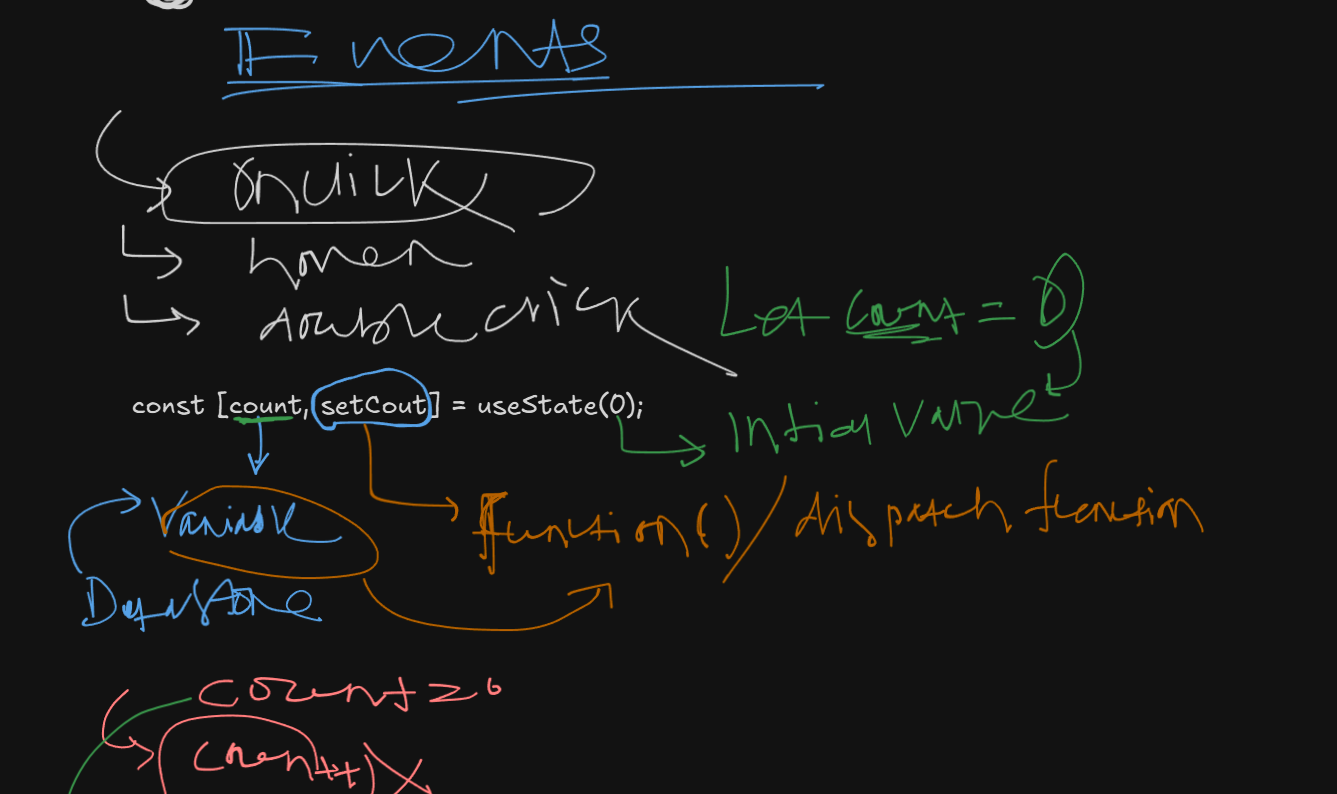 Events
onClick
hover
double click
Let count = 0
const [count, setCout] = useState(0);
Intial value
Variable
function() / dispatch function
count = 0
count++ X